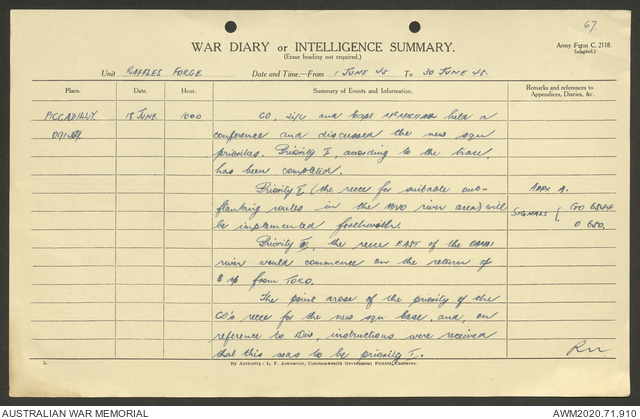 67.
WAR DIARY or INTELLIGENCE SUMMARY.
(Erase heading not required.)
Army Form C. 2118.
(adapted.)
Unit RAFFLES FORCE Date and Time.—From 1 JUNE 45 To 30 JUNE 45.
Place. Date. Hour. Summary of Events and Information. Remarks and references to
Appendices, Diaries, &c.
PICCADILLY 18 JUNE 1000 CO, 2i/c and Capt held a
conference and discussed the new sqn
priorities. Priority I, according to the trace,
has been completed.
Priority II (the recce for suitable out- APPX A.
flanking routes in the river area) will SIGNALS { GO 6844
be implemented forthwith. O 680.
Priority III, the recce EAST of the
river would commence on the return of
B tp from TOKO.
The point arose of the priority of the
CO's recce for the new sqn base, and, on
reference to Div, instructions were received
that this was to be priority I.
L. By Authority: L. F. Johnston, Commonwealth Government Printer, Canberra.
AUSTRALIAN WAR MEMORIAL AWM2020.71.910